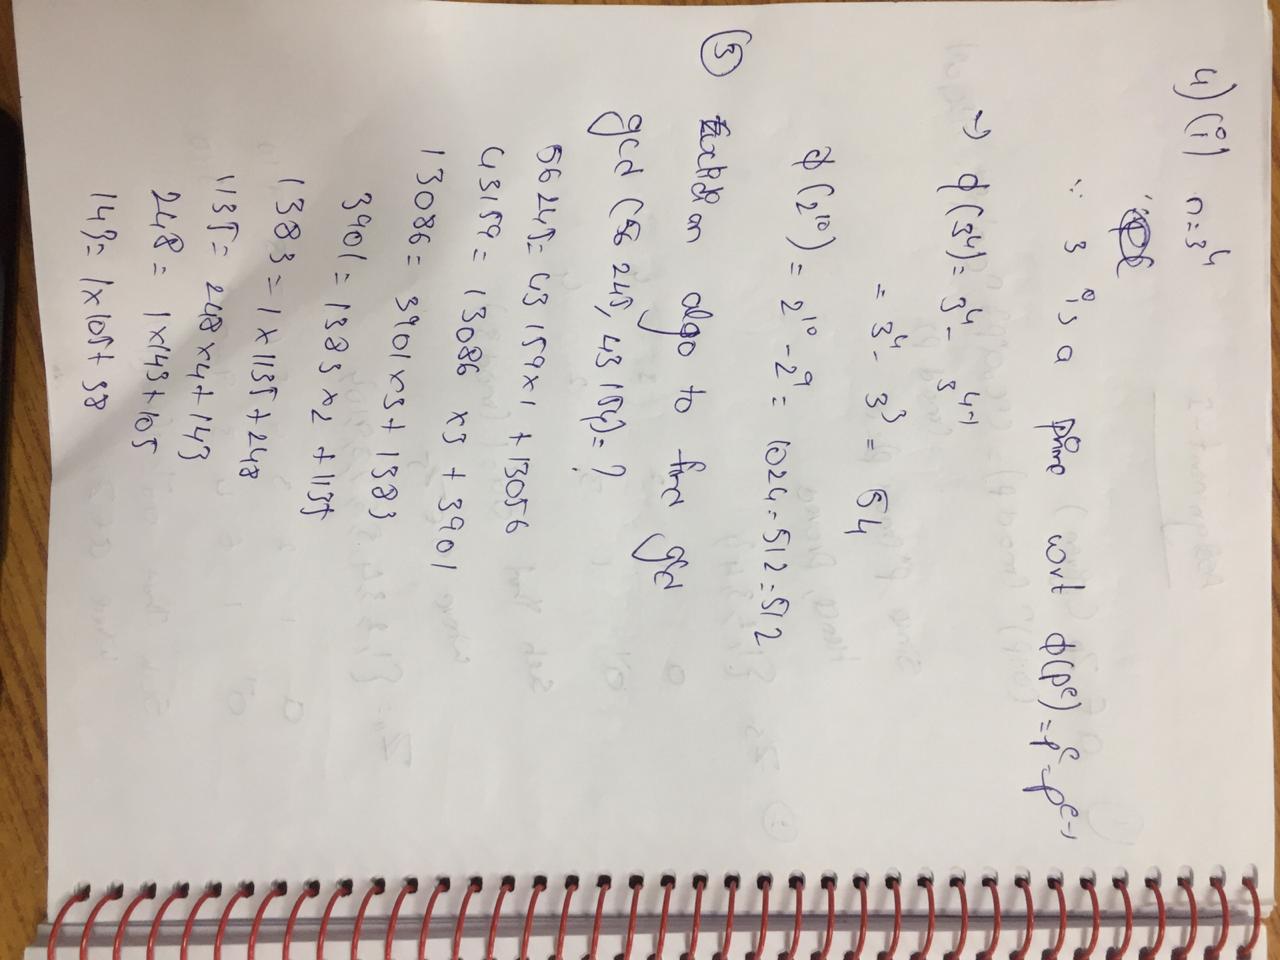 4) (i) n=3⁴
∵ 3 is a prime wort φ(pᵉ) = pᵉ - pᵉ⁻¹
→ φ(3⁴) = 3⁴ - 3⁴⁻¹
= 3⁴ - 3³ = 54
φ(2¹⁰) = 2¹⁰ - 2⁹ = 1024 - 512 = 512
⑤ algo to find gcd
gcd (56 245, 43 159) = ?
56245 = 43159 x 1 + 13056
43159 = 13086 x3 + 3901
13086 = 3901 x 3 + 1383
3901 = 1383 x2 + 1135
1383 = 1 x 1135 + 248
1135 = 248 x 4 + 143
248 = 1 x 143 + 105
143 = 1 x 105 + 38